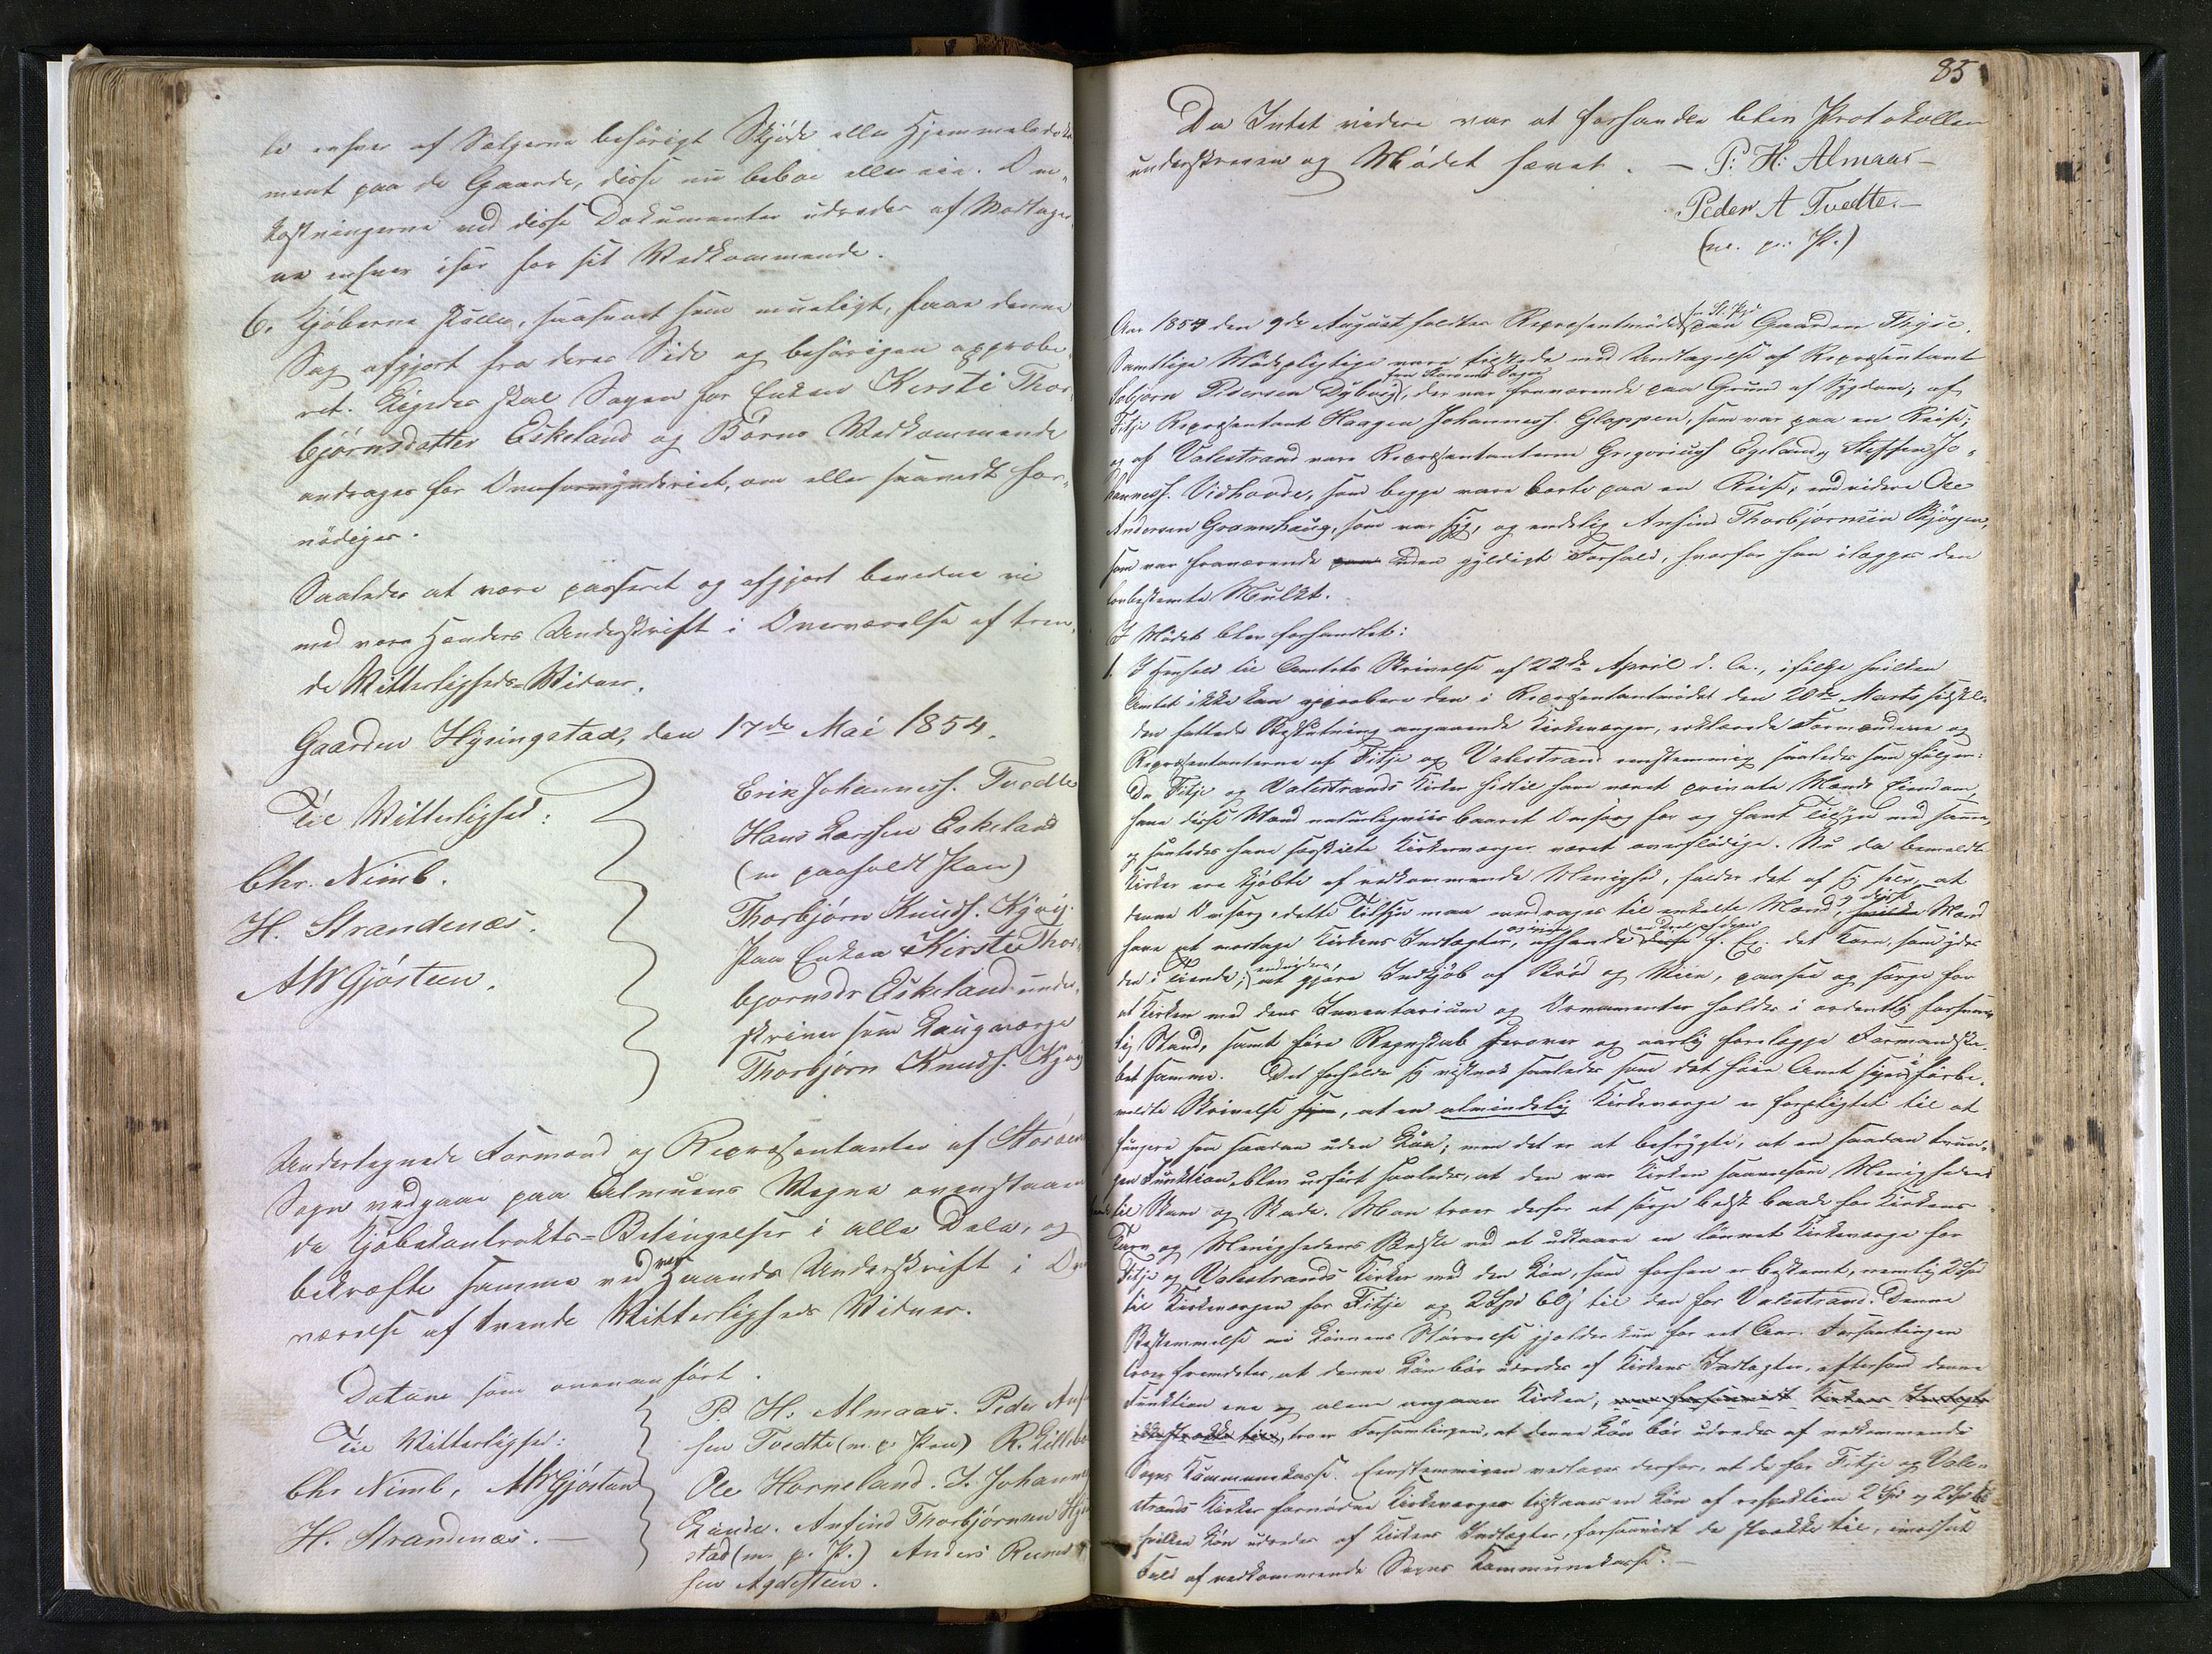 te enhver af Sælgerne behørigt Skjøde eller Hjemmelsdoku
ment paa de Gaarde, disse nu beboe eller eie. Om¬
kostningerne ved disse Dokumenter udredes af Modtager¬
ne enhver især for sit Vedkommende.
6. Kjøberne skulle, saasnart som mueligt, faae denne
Sag afgjort fra deres Side og behørigen approbe¬
ret. Ligedes skal Sagen for Enken Kersti Thor¬
bjørnsdatter Eskeland og Børns Vedkommende
andrages for Overformynderiet, om eller saavidt for¬
nødiges.
Saaledes at være passeret og afgjort bevidne vi
med vore Hænders Underskrift i Overværelse af tven¬
de Vitterligheds-Vidner.
Gaarden Hysingstad, den 17de Mai 1854.
Til Vitterlighed:
Chr. Nimb.
H. Strandenæs.
AWGjøsteen.
Erik Johanness. Tvedte
Hans Larssen Eskeland
(m paaholdt Pen)
Thorbjørn Knuds. Kyvig.
Paa Enken Kirsti Thor¬
bjornsdr Eskeland under¬
skriver som Laugværge
Thorbjørn Knuds. Kyvig
Undertegnede Formænd og Repræsentanter af Storøens
Sogn vedgaae paa Almuens Vegne ovenstaaen
de Kjøbekontrakts-Betingelser i alle Dele, og
bekræfte samme ved vor Haands Underskrift i Over
værelse af tvende Vitterligheds Vidner.
Datum som ovenanført.
Til Vitterlighed:
Chr Nimb, AWGjøsteen
H. Strandenæs.
P. H. Almaas. Peder An
sen Tvedte (m. p. Pen) R.
Ole Horneland. J. Johann
Lunde. Anfind Thorbjørnsen Hys
stad (m. p. P.) Anders
sen Agdesteen.
85
Da Intet videre var at forhandle blev Protokollen
underskreven og Mødet hævet. - P. H. Almaas -
Peder A Tvedte.-
(m. p. P.)
Aar 1854 den 9de August holdtes Repræsentmødet paa Gaarden
Samtlige Mødepligtige vare tilstede med Undtagelse af Repræsentant
fra Storøens Sogn
Torbjørn Pedersen Dybvig, der var fraværende paa Grund af Sygdom; af
Fitje Repræsentant Haagen Johanness. Gloppen, som var paa en Reise;
og af Valestrand vare Repræsentanterne Gregorius Egeland og Steffen Jo¬
hanness. Vidhovde, som begge vare borte paa en Reise; endvidere Ole
Andersen Gramshaug, som var syg, og endelig Anfind Thorbjørnsen
som var fraværende paa uden gyldigt Forfald, hvorfor han ilægges den
lovbestemte Mulkt.
I Mødet blev forhandlet:
1. I Henhold til Amtets Skrivelse af 22de April d. A., ifølge hvilken
Amtet ikke kan approbere den i Repræsentantmødet den 20de Marts sidstle¬
den fattede Beslutning angaaende Kirkeværger, erklærede Formændene og
Repræsentanterne af Fitje og Valestrand eenstemmig saaledes som følger:
Da Fitje og Valestrands Kirker hidtil have været private Mænds Eiendom,
have disse Mænd naturligviis baaret Omsorg for og havt Tilsyn med samme,
og saaledes have særskilte Kirkeværger været overflødige. Nu da bemeldte
Kirker ere kjøbte af vedkommende Menighed, falder det af sig selv, at
denne Omsorg, dette Tilsyn maa overdrages til enkelte Mænd, og disse hvilke Mænd
have at modtage Kirkens Indtægter, afhænde f. Ex. det Korn, som ydes
den i Tiende; endvidere, at gjøre Indkjøb af Brød og Viin, paasee og sørge for
at Kirken med dens Inventarium og Ornamenter holdes i ordentlig forsvar¬
lig Stand, samt føre Regnskab herover og aarlig forelægge Formandska¬
bet samme. Det forholder sig vistnok saaledes som det høie Amt siger i førbe¬
meldte Skrivelse, at en almindelig Kirkeværge er forpligtet til at
fungere som saadan uden Løn; men det er at befrygte, at en saadan tvun¬
gen Funktion, blev udført saaledes, at den var Kirken saavelsom Menigheden
til Skam og Skade. Man troer derfor at sørge bedst baade for Kirkens
Tarv og Menighedens Bedste ved at udkaare en lønnet Kirkeværge for
Fitje og Valestrands Kirker med den Løn, som forhen er bestemt, nemlig 2 Spd
til Kirkeværgen for Fitje og 2 Spd 60 ß til den for Valestrand. Denne
Bestemmelse om Lønnens Størrelse gjelder kun for eet Aar. Forsamlingen
troer fremdeles, at denne Løn bør udredes af Kirkens Indtægter, eftersom denne
Funktion ene og alene angaaer Kirken, men forsaavidt Kirkens Indtægter
ikke strække til, troer Forsamlingen, at denne Løn bør udredes af vedkommende
Sogns Kommunekasse. Eenstemmigen vedtages derfor, at de for Fitje og Vale¬
strands Kirker fornødne Kirkeværger tilstaaes en Løn af respektive 2 Spd og 2 Spd 60
hvilken Løn udredes af Kirkens Indtægter, forsaavidt de strække til, i modsat
Fald af vedkommende Sogns Kommunekasse.-